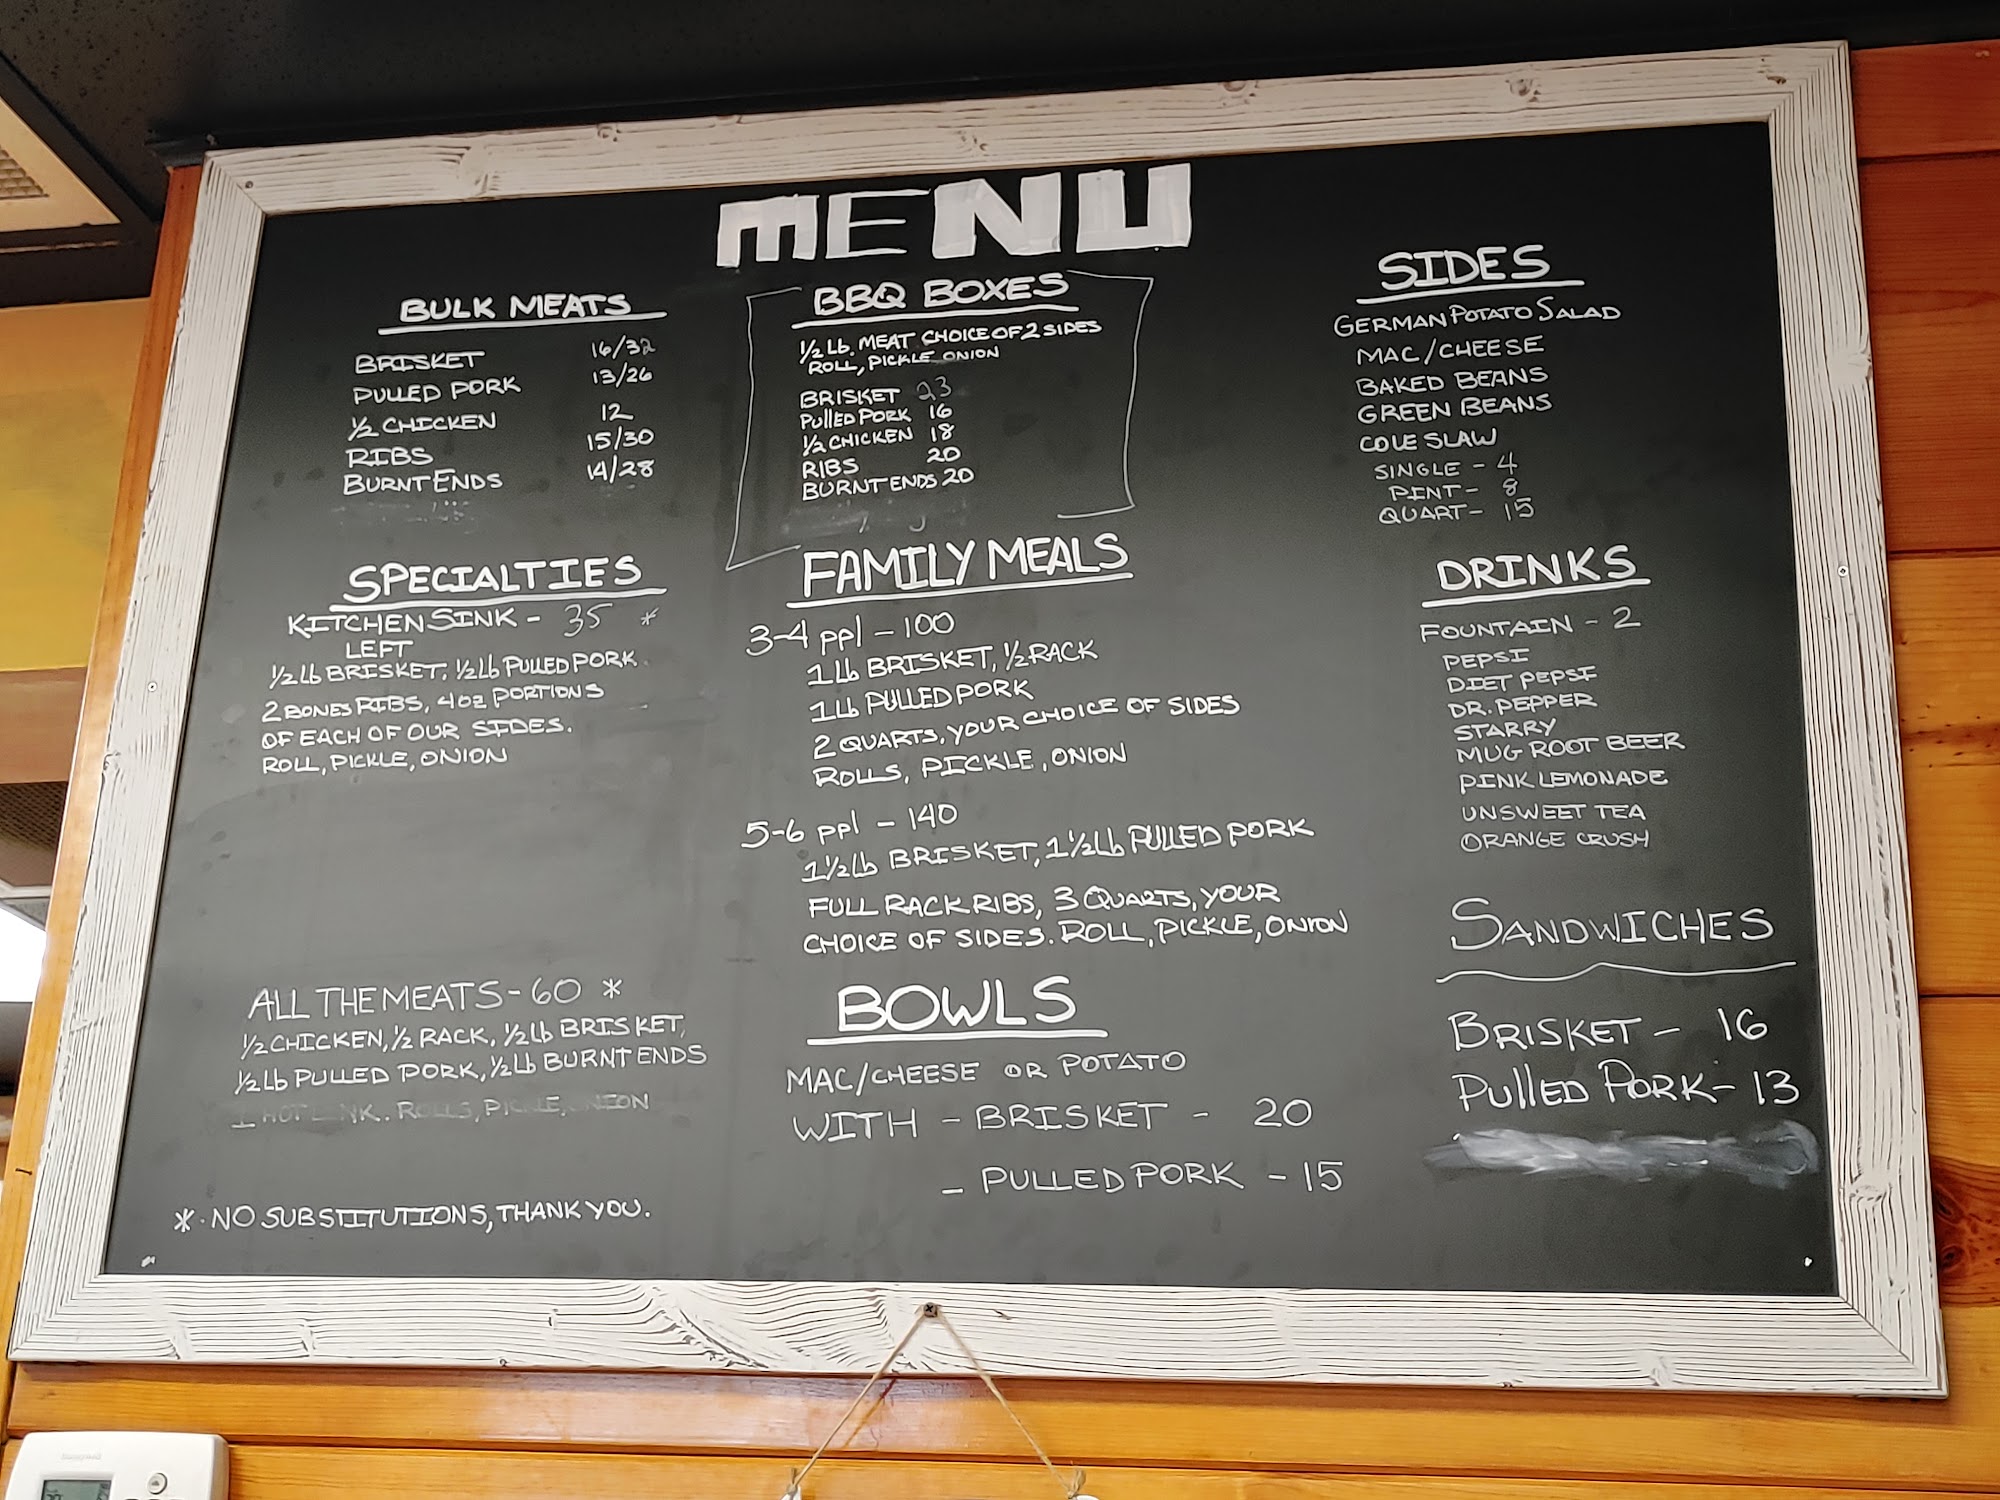 MENU
BULK MEATS
BRISKET 16/32
PULLED PORK 13/26
1/2 CHICKEN 12
RIBS 15/30
BURNT ENDS 14/28
SPECIALTIES
KITCHEN SINK - 35 *
LEFT
1/2 lb BRISKET, 1/2 lb PULLED PORK.
2 BONES RIBS, 4 oz PORTIONS
OF EACH OF OUR SIDES.
ROLL, PICKLE, ONION
ALL THE MEATS - 60 *
1/2 CHICKEN, 1/2 RACK, 1/2 lb BRISKET,
1/2 lb PULLED PORK, 1/2 lb BURNT ENDS
ROLLS, PICKLE, ONION
* - NO SUBSTITUTIONS, THANK YOU.
BBQ BOXES
1/2 lb. MEAT CHOICE OF 2 SIDES
ROLL, PICKLE ONION
BRISKET 23
PULLED PORK 16
1/2 CHICKEN 18
RIBS 20
BURNT ENDS 20
FAMILY MEALS
3-4 ppl - 100
1 lb BRISKET, 1/2 RACK
1 lb PULLED PORK
2 QUARTS, YOUR CHOICE OF SIDES
ROLLS, PICKLE, ONION
5-6 ppl - 140
1 1/2 lb BRISKET, 1 1/2 lb PULLED PORK
FULL RACK RIBS, 3 QUARTS, YOUR
CHOICE OF SIDES. ROLL, PICKLE, ONION
BOWLS
MAC/CHEESE OR POTATO
WITH - BRISKET - 20
- PULLED PORK - 15
SIDES
GERMAN POTATO SALAD
MAC/CHEESE
BAKED BEANS
GREEN BEANS
COLE SLAW
SINGLE - 4
PINT - 8
QUART - 15
DRINKS
FOUNTAIN - 2
PEPSI
DIET PEPSI
DR. PEPPER
STARRY
MUG ROOT BEER
PINK LEMONADE
UNSWEET TEA
ORANGE CRUSH
SANDWICHES
BRISKET - 16
PULLED PORK - 13